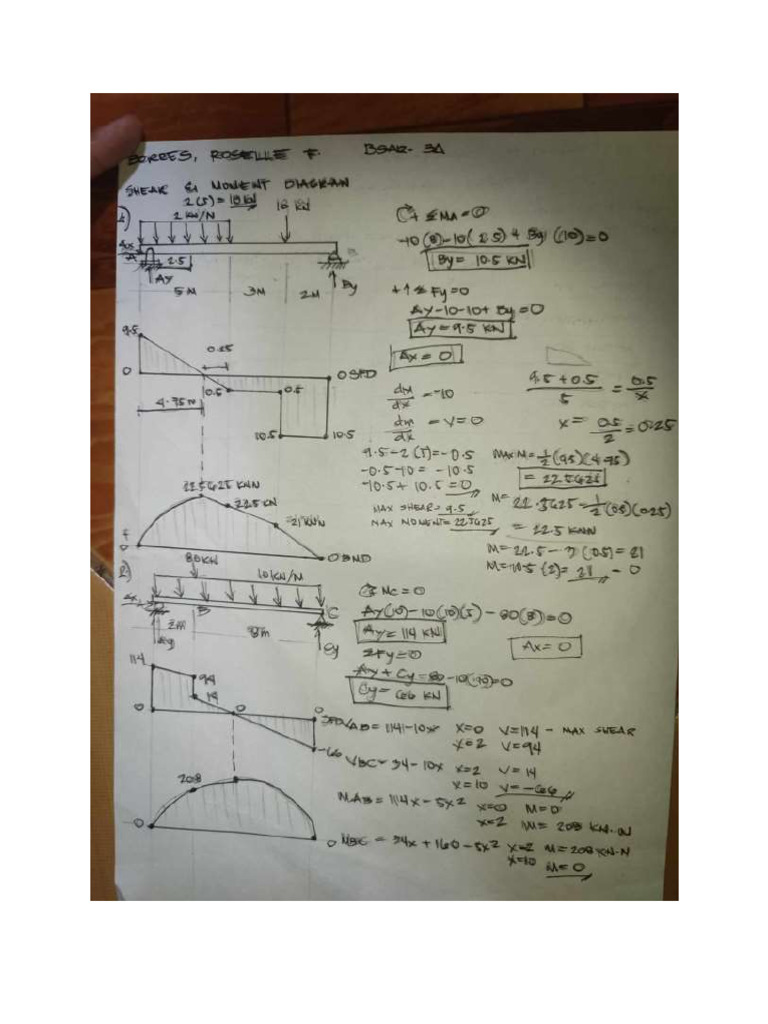 BORRES, ROSELLE F. BSAR- 3A
SHEAR & MOMENT DIAGRAM
1)
2(5) = 10 kN
2 kN/N
10 kN
Ax
A
2.5
Ay
By
5M 3M 2M
9.5
0
0.25
0 SFD
0.5
0.5
4.75M
10.5
10.5
22.5625 KNN
22.5 KN
21 KNN
0
0 BMD
+ ΣMA = 0
-10(8)-10(2.5) + By (10) = 0
By = 10.5 KN
+↑ΣFy = 0
Ay-10-10+ By = 0
Ay = 9.5 KN
Ax = 0
dM/dx = -10
dM/dx = V = 0
9.5+0.5/5 = 0.5/x
x = 0.5/2 = 0.25
9.5-2(5) = -0.5
-0.5-10 = -10.5
-10.5 + 10.5 = 0
MAX SHEAR = 9.5
MAX MOMENT = 22.5625
MAX M = 1/2(9.5)(4.75)
= 22.5625
M = 22.5625 - 1/2(0.5)(0.25)
= 22.5 KNN
M = 22.5 - 3(0.5) = 21
M = 10.5(2) = 21 - 0
2)
80KN
10KN/M
Ax
B
C
2m
8m
Ay
Cy
114
94
14
0
0
0
SFD
-66
208
0
0
ΣMc = 0
Ay(10) - 10(10)(5) - 80(8) = 0
Ay = 114 KN
Ax = 0
ΣFy = 0
Ay + Cy = 80 - 10(10) = 0
Cy = 66 KN
VAB = 114 - 10x x=0 V = 114 - MAX SHEAR
x=2 V = 94
VBC = 34 - 10x x=2 V = 14
x=10 V = -66
MAB = 114x - 5x² x=0 M = 0
x=2 M = 208 KN.M
MBC = 34x + 160 - 5x² x=2 M = 208 KN.N
x=10 M = 0